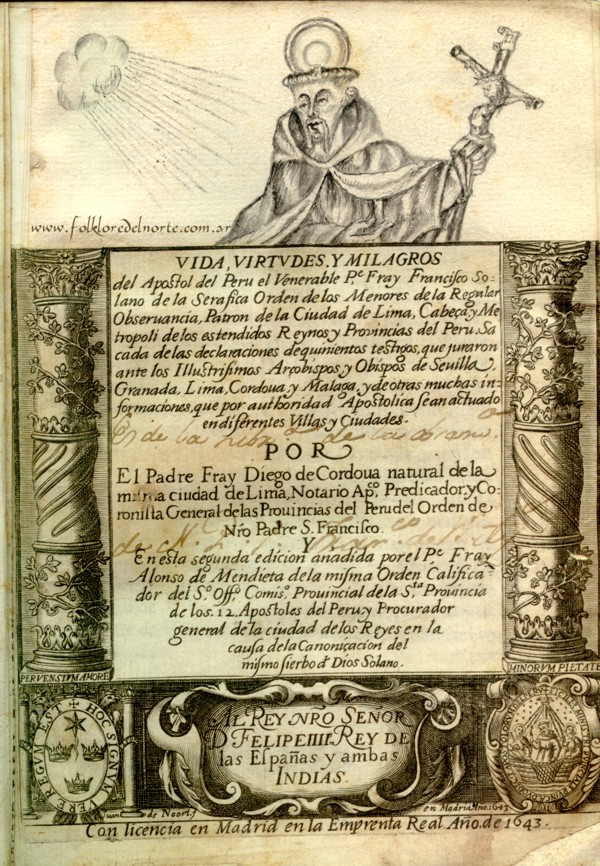 www.folkloredelnorte.com.ar
VIDA, VIRTVDES, Y MILAGROS
del Apostol del Peru el Venerable P.e Fray Francisco So-
lano de la Serafica Orden de los Menores de la Regular
Obseruancia, Patron de la Ciudad de Lima, Cabeça y Me
tropoli de los estendidos Reynos y Prouincias del Peru. Sa
cada de las declaraciones de quinientos testigos, que juraron
ante los Illustrisimos Arçobispos y Obispos de Seuilla,
Granada, Lima, Cordoua, y Malaga, y de otras muchas in-
formaciones, que por authoridad Apostolica se an actuado
en diferentes Villas y Ciudades.
POR
El Padre Fray Diego de Cordoua natural de la
misma ciudad de Lima, Notario Ap.o Predicador, y Co-
ronista General de las Prouincias del Peru del Orden de
Nr̃o Padre S. Francisco.
Y
En esta segunda edicion añadida por el P.e Fray
Alonso de Mendieta de la misma Orden Califica-
dor del S.o Off.o Comis.o Prouincial de la S.ta Prouincia
de los. 12. Apostoles del Peru, y Procurador
general de la ciudad de los Reyes en la
causa de la Canonicacion del
mismo sierbo d̃ Dios Solano.
PERVENSIVM AMORE
MINORVM PIETATE
AL REY NR̃O SEÑOR
D FELIPE IIII. REY DE
las España̧s y ambas
INDIAS.
HOC SIGNVM VERE REGVM EST
de Noort f
en Madrid Año. 1643
Con licencia en Madrid en la Emprenta Real Año. de 1643.